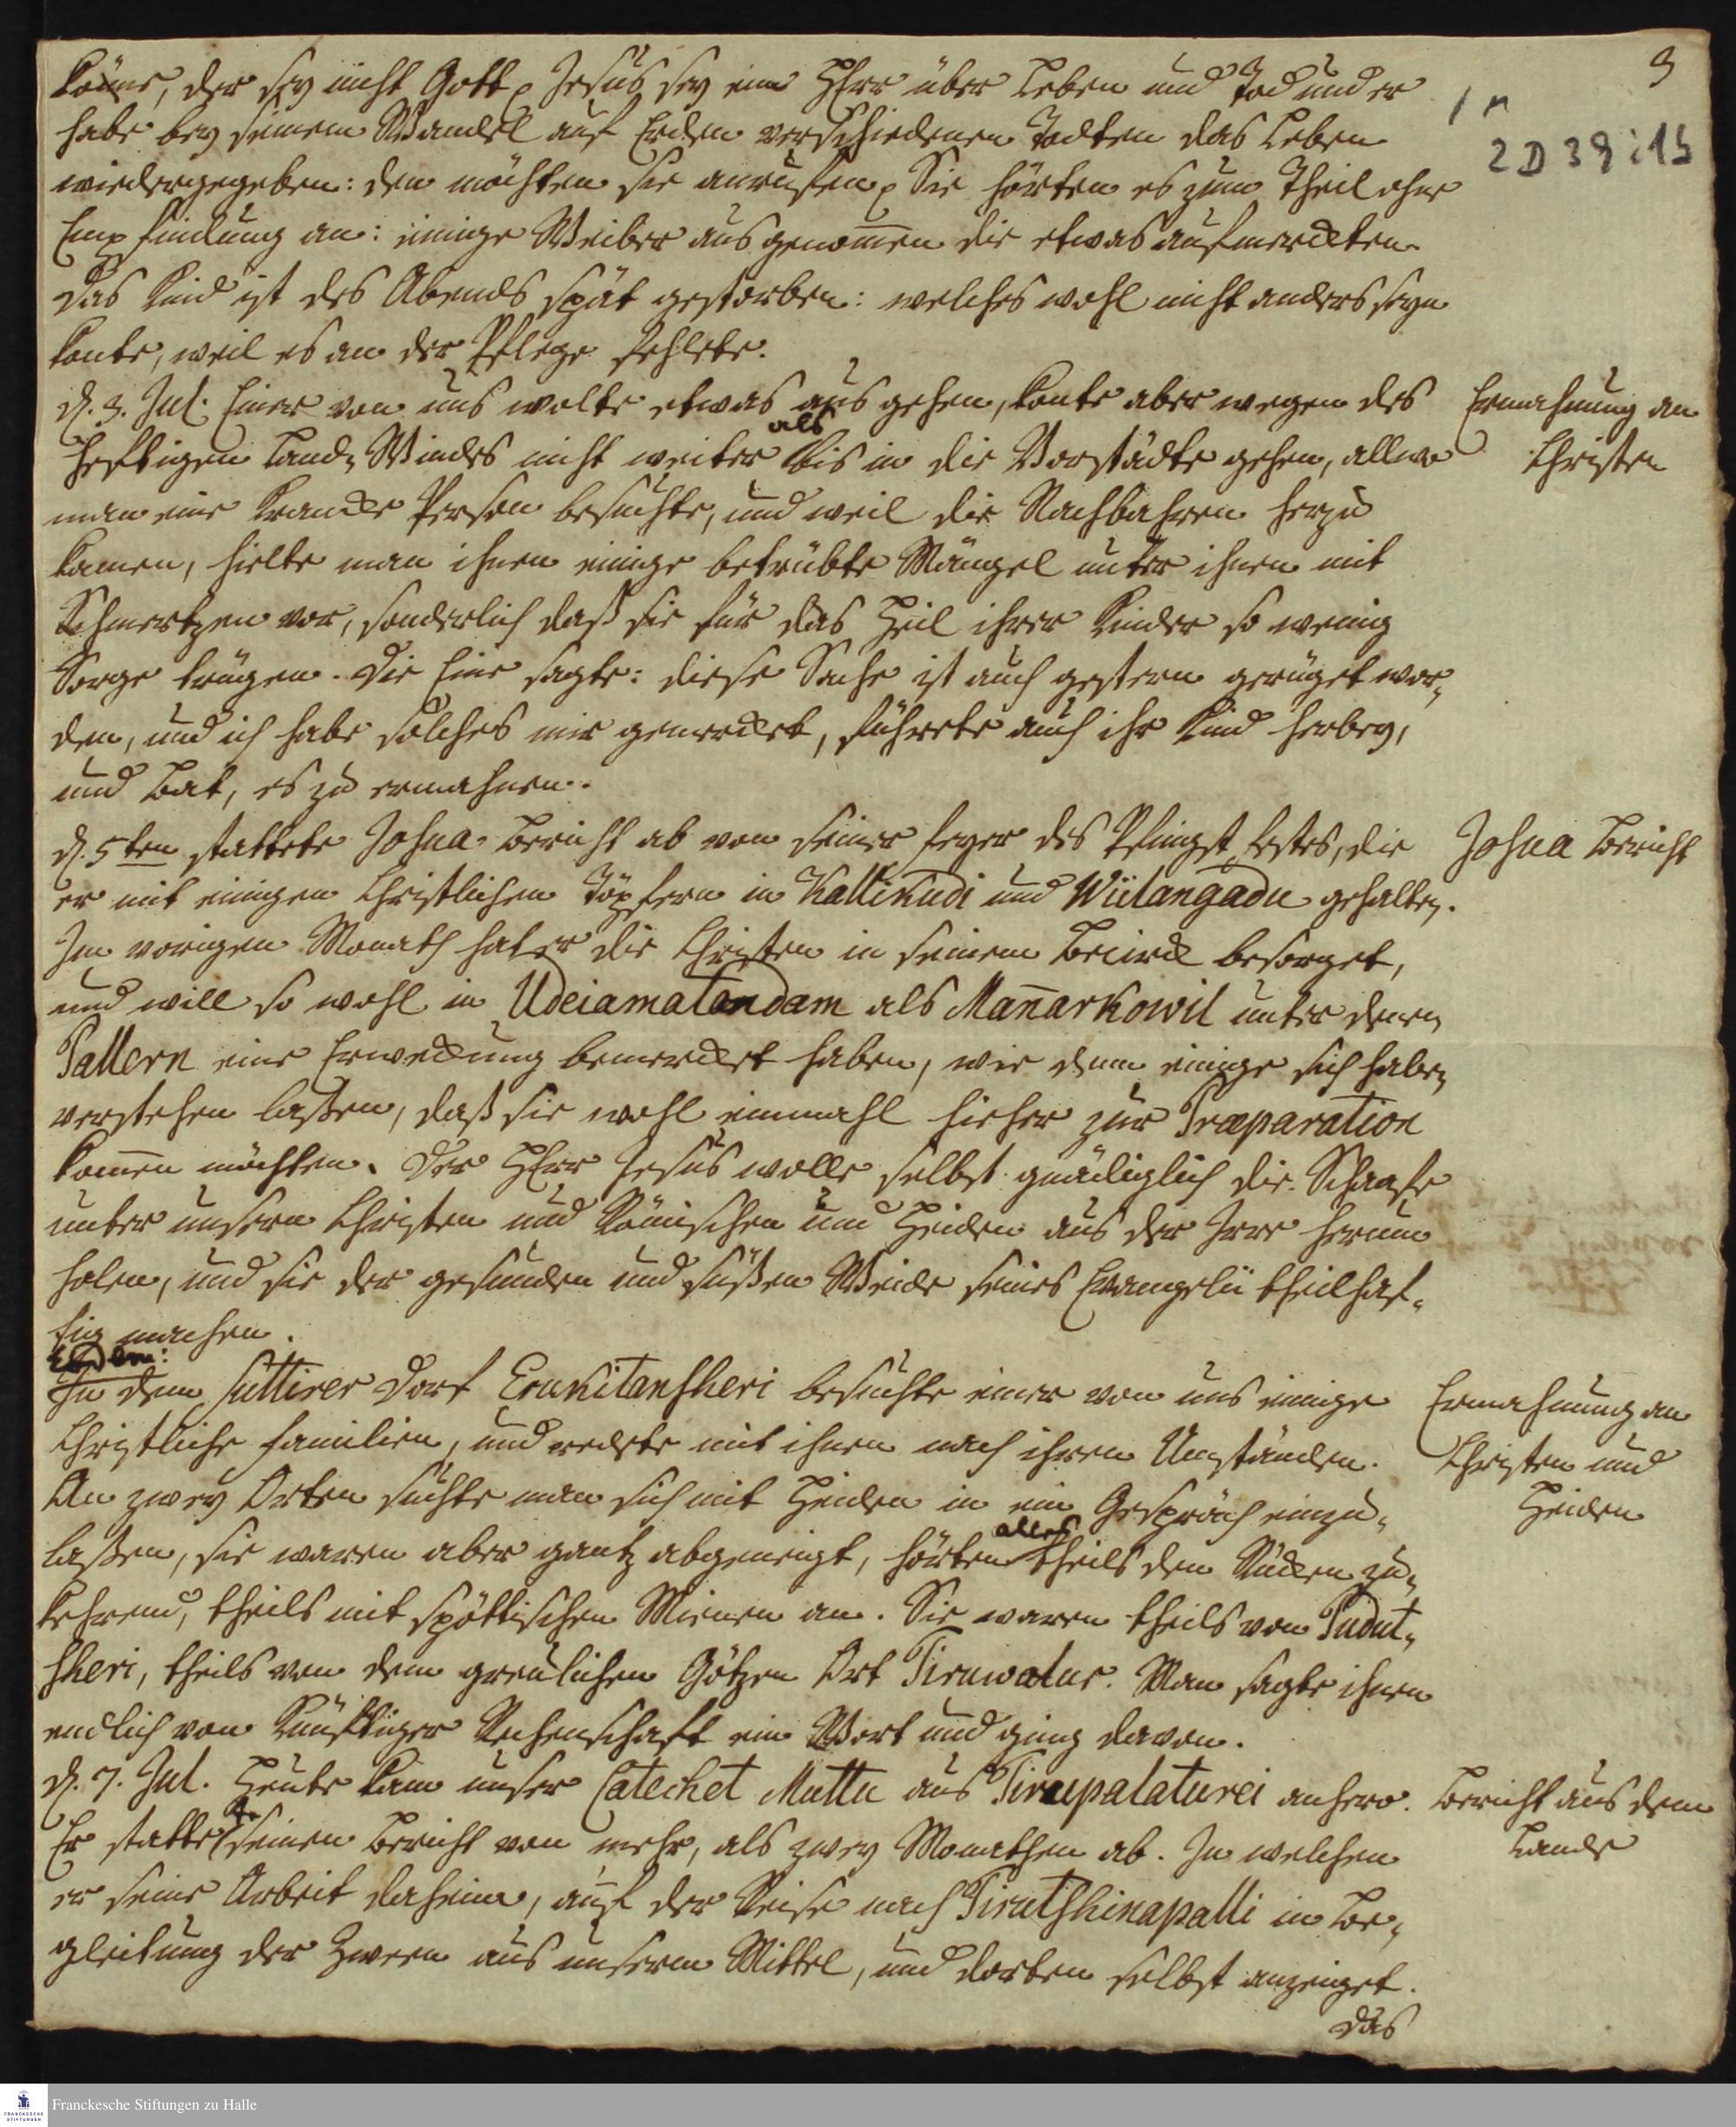 3
1 M
2 D 39:15
köñe, der sey nicht Gott, Jesus sey ein HErr über Leben und Tod und er
habe bey seinem Wandel auf Erden verschiedenen Todten das Leben
wiedergegeben: den möchten sie anrufen. Sie hörten es zum Theil ohne
Empfindung an: einige Weiber ausgenom̄en die etwas aufmerckten.
Das Kind ist des Abends spät gestorben: welches wohl nicht anders seyn
konte, weil es an der Pflege fehlete.
d. 3. Jul. Einer von uns wolte etwas aus gehen, konte aber wegen des
Ermahnung an
Christen
heftigen Land-Windes nicht weiter als bis in die Vorstädte gehen, allwo
man eine krancke Person besuchte, und weil die Nachbahren herzu
kamen, hielte man ihnen einige betrübte Mängel unter ihnen mit
Schmertzen vor, sonderlich daß sie für das Heil ihrer Kinder so wenig
Sorge trügen. Die Eine sagte: diese Sache ist auch gestern gerüget wor-
den, und ich habe solches mir gemercket, führete auch ihr Kind herbey,
und bat, es zu ermahnen.
d. 5ten stattete Josua Bericht ab von seiner Feyer des Pfingst Festes, die
Josua Bericht
er mit einigen Christlichen Töpfern in Kallikudi und Wiilangadu gehalten.
Im vorigen Monath hat er die Christen in seinem Bezirck besorget,
und will so wohl in Udeiamatandam als Mañarkowil unter denen
Pallern eine Erweckung bemercket haben, wie denn einige sich haben
verstehen laßen, daß sie wohl einmahl hieher zur Præparation
kom̄en möchten. Der HErr Jesus wolle selbst gnädiglich die Schaafe
unter unsern Christen und Römischen und Heiden aus der Irre herum
holen, und sie der gesunden und süßen Weide seines Evangelii theilhaf-
tig machen.
Eodem:
In dem Suttirer Dorf Erukitanscheri besuchte einer von uns einige
Ermahnung an
Christen und
Heiden
Christliche Familien, und redete mit ihnen nach ihren Umständen.
An zwey Orten suchte man sich mit Heiden in ein Gespräch einzu-
laßen, sie waren aber gantz abgeneigt, hörten alles theils den Rücken zu-
kehrend, theils mit spöttischen Mienen an. Sie waren theils von Pudut-
scheri, theils von dem greulichen Götzen Ort Tiruwalur. Man sagte ihnen
endlich von künftiger Rechenschaft ein Wort und ging davon.
d. 7. Jul. Heute kam unser Catechet Muttu aus Tirupalaturei anhero.
Bericht aus dem
Lande
Er stattete seinen Bericht von mehr, als zwey Monathen ab. In welchen
er seine Arbeit daheim, auf der Reise nach Tirutshinapalli in Be-
gleitung der Zween aus unserm Mittel, und dorten selbst anzeiget.
Das
Franckesche Stiftungen zu Halle